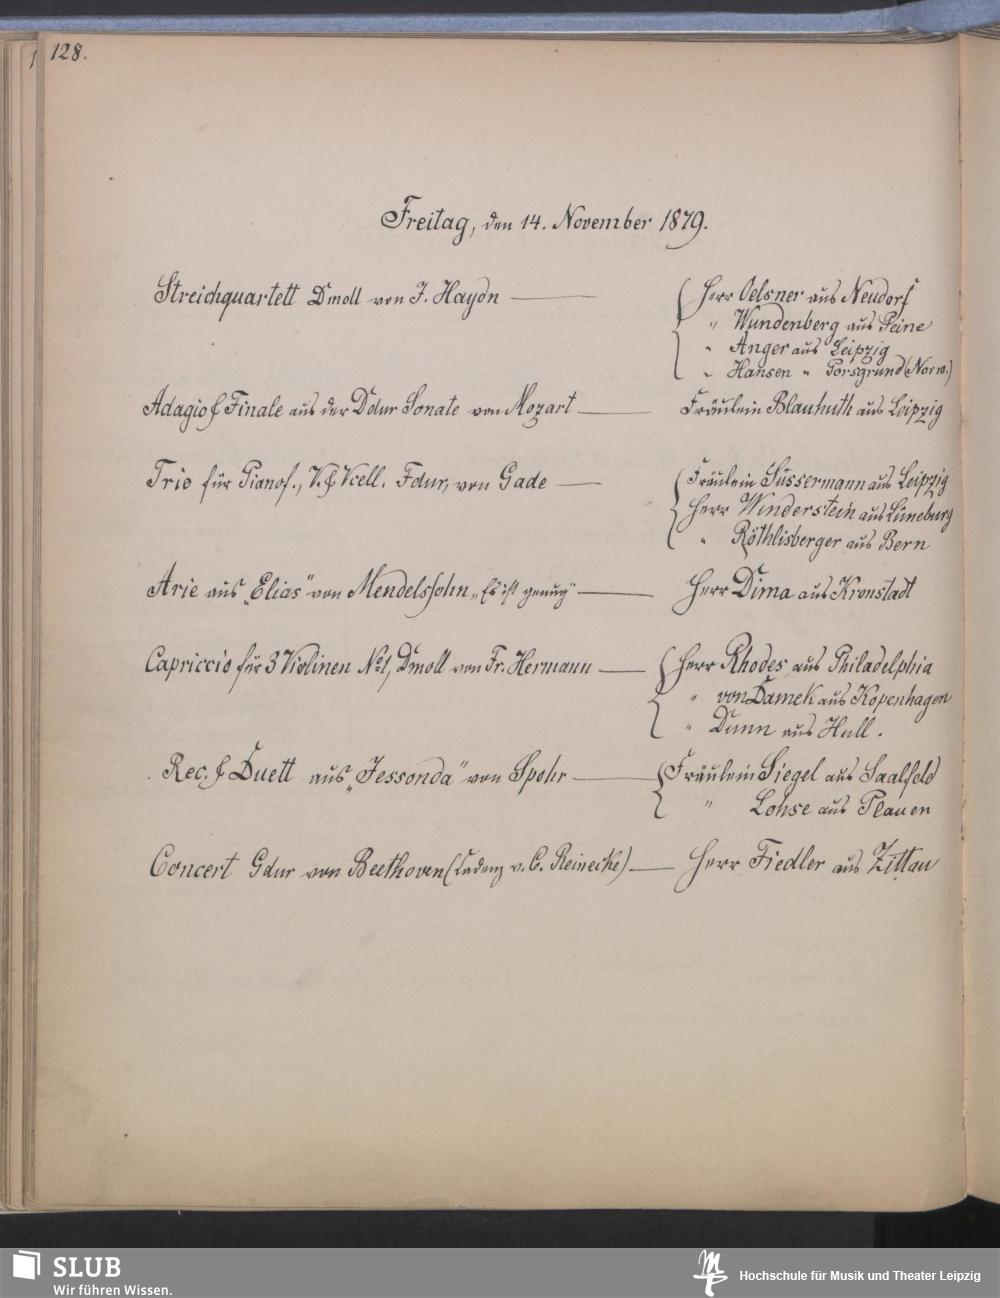 128.
Freitag, den 14. November 1879.
Streichquartett Dmoll von J. Haydn — Herr Oelsner aus Neudorf
" Wundenberg aus Peine
" Anger aus Leipzig
" Hansen " Porsgrund (Norw.)
Adagio & Finale aus der Ddur Sonate von Mozart — Fräulein Blauhuth aus Leipzig
Trio für Pianof., V. & Vcell. Fdur, von Gade — Fräulein Süssermann aus Leipzig
Herr Winderstein aus Lüneburg
" Röthlisberger aus Bern
Arie aus „Elias" von Mendelssohn „Es ist genug" — Herr Dima aus Kronstadt
Capriccio für 3 Violinen No 1, Dmoll von Fr. Hermann — Herr Rhodes aus Philadelphia
" von Damek aus Kopenhagen
" Dunn aus Hull.
Rec. & Duett aus „Jessonda" von Spohr — Fräulein Siegel aus Saalfeld
" Lohse aus Plauen
Concert Gdur von Beethoven (Cadenz v. C. Reinecke) — Herr Fiedler aus Zittau
SLUB
Wir führen Wissen.
Hochschule für Musik und Theater Leipzig